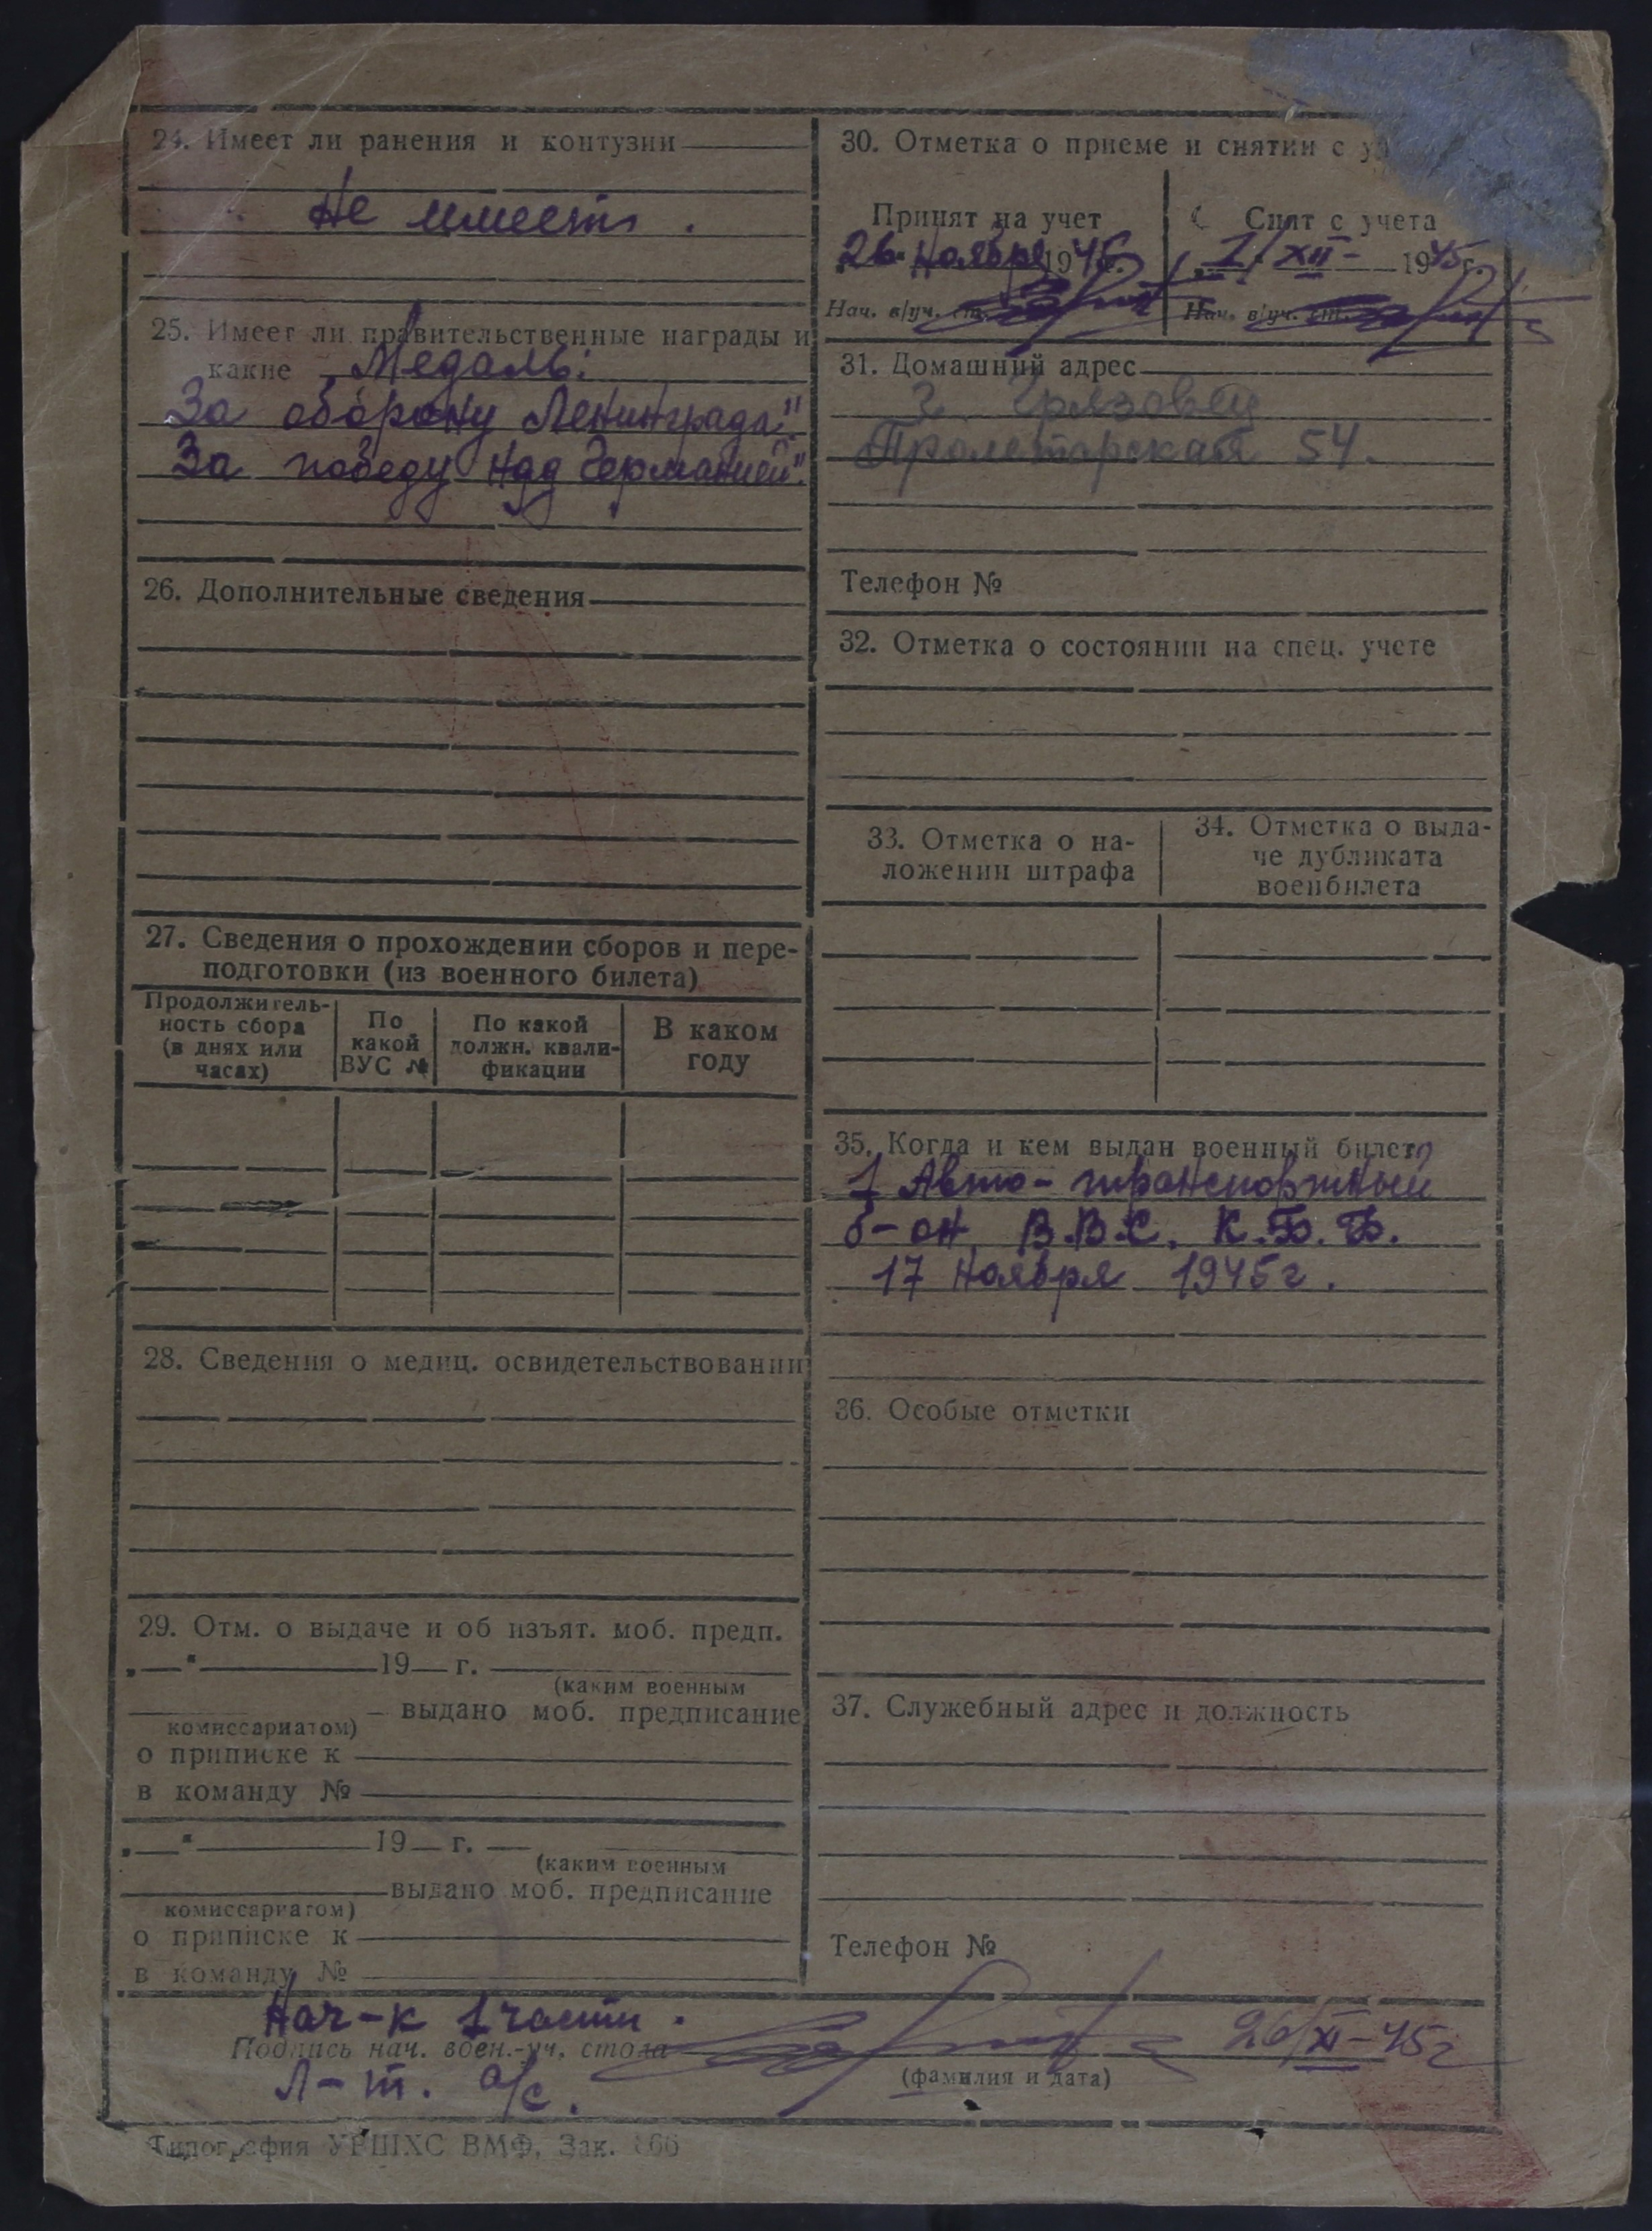 24. Имеет ли ранения и контузии
Не имеет.
25. Имеет ли правительственные награды и
какие Медаль:
За оборону Ленинграда"
За победу над Германией".
26. Дополнительные сведения
27. Сведения о прохождении сборов и пере-
подготовки (из военного билета)
Продолжитель-
ность сбора
(в днях или
часах)
По
какой
ВУС №
По какой
должн. квали-
фикации
В каком
году
28. Сведения о медиц. освидетельствовании
29. Отм. о выдаче и об изъят. моб. предп.
„ — “ 19 — г.
(каким военным
выдано моб. предписание
комиссариатом)
о приписке к
в команду №
„ — “ 19 — г.
(каким военным
выдано моб. предписание
комиссариатом)
о приписке к
в команду №
30. Отметка о приеме и снятии с
Принят на учет
26 Ноября 1945г.
Нач. в/уч. ст.
Снят с учета
1/XII- 1945г.
Нач. в/уч. ст.
31. Домашний адрес
г. Грязовец
Пролетарская 54.
Телефон №
32. Отметка о состоянии на спец. учете
33. Отметка о на-
ложении штрафа
34. Отметка о выда-
че дубликата
военбилета
35. Когда и кем выдан военный билет
1 Авто-транспортный
б-он В.В.С. К.Б.Ф.
17 Ноября 1945г.
36. Особые отметки
37. Служебный адрес и должность
Телефон №
Нач-к 1 части.
Подпись нач. воен.-уч. стола
26/XI-45г
Л-т. а/с.
(фамилия и дата)
Типография УРШХС ВМФ. Зак.